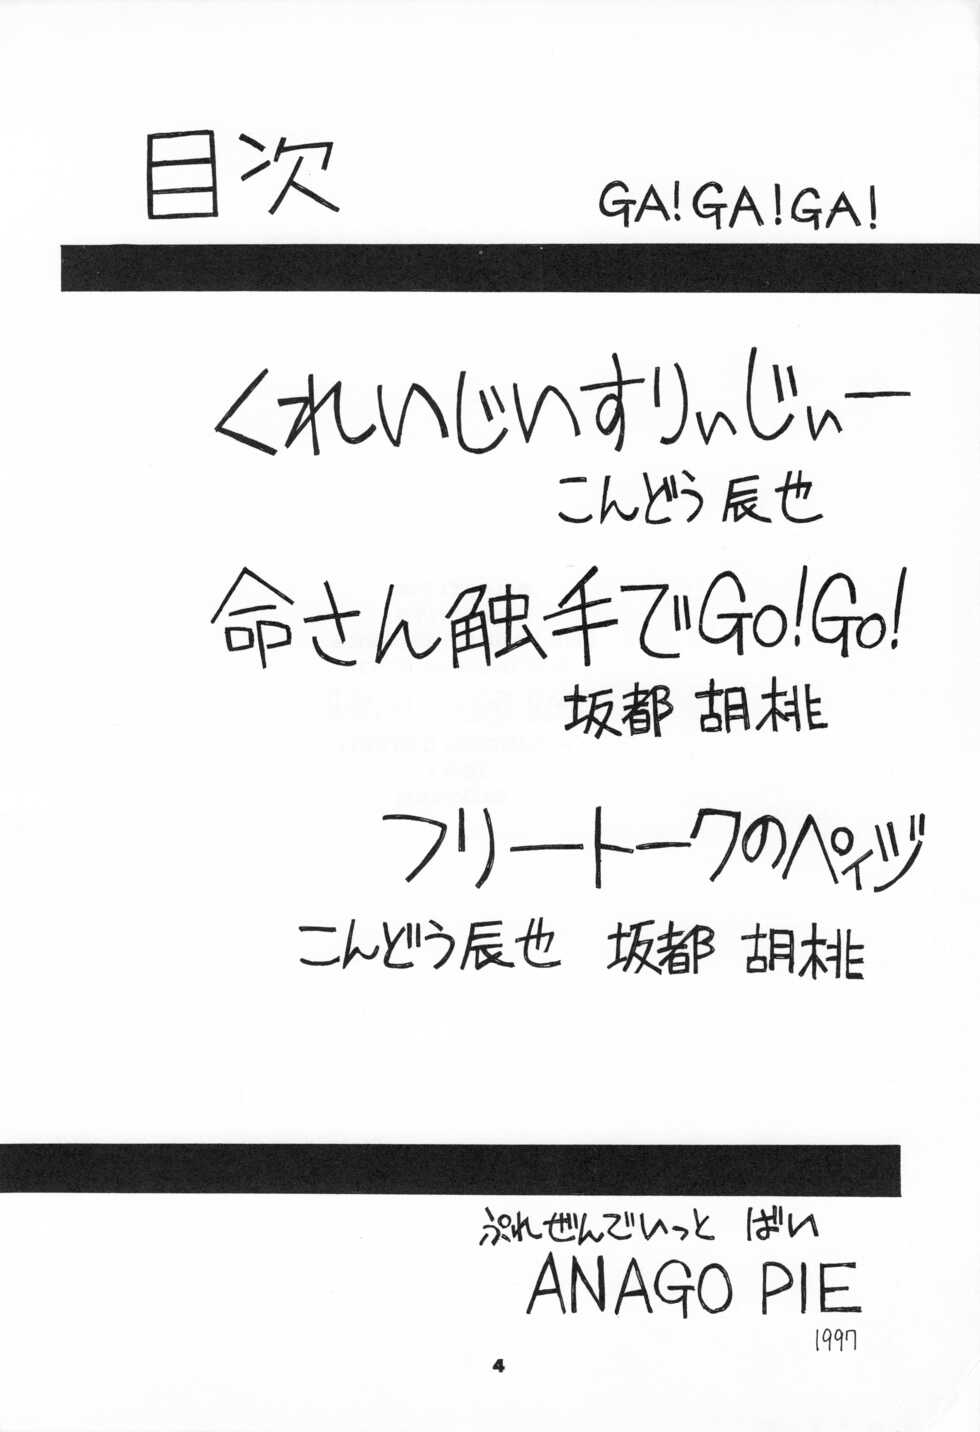 目次
GA!GA!GA!
くれいじいすりぃじぃー
こんどう辰也
命さん触手でGo!Go!
坂都 胡桃
フリートークのペイヅ
こんどう辰也 坂都 胡桃
ぷれぜんでいっと ばい
ANAGO PIE
1997
4